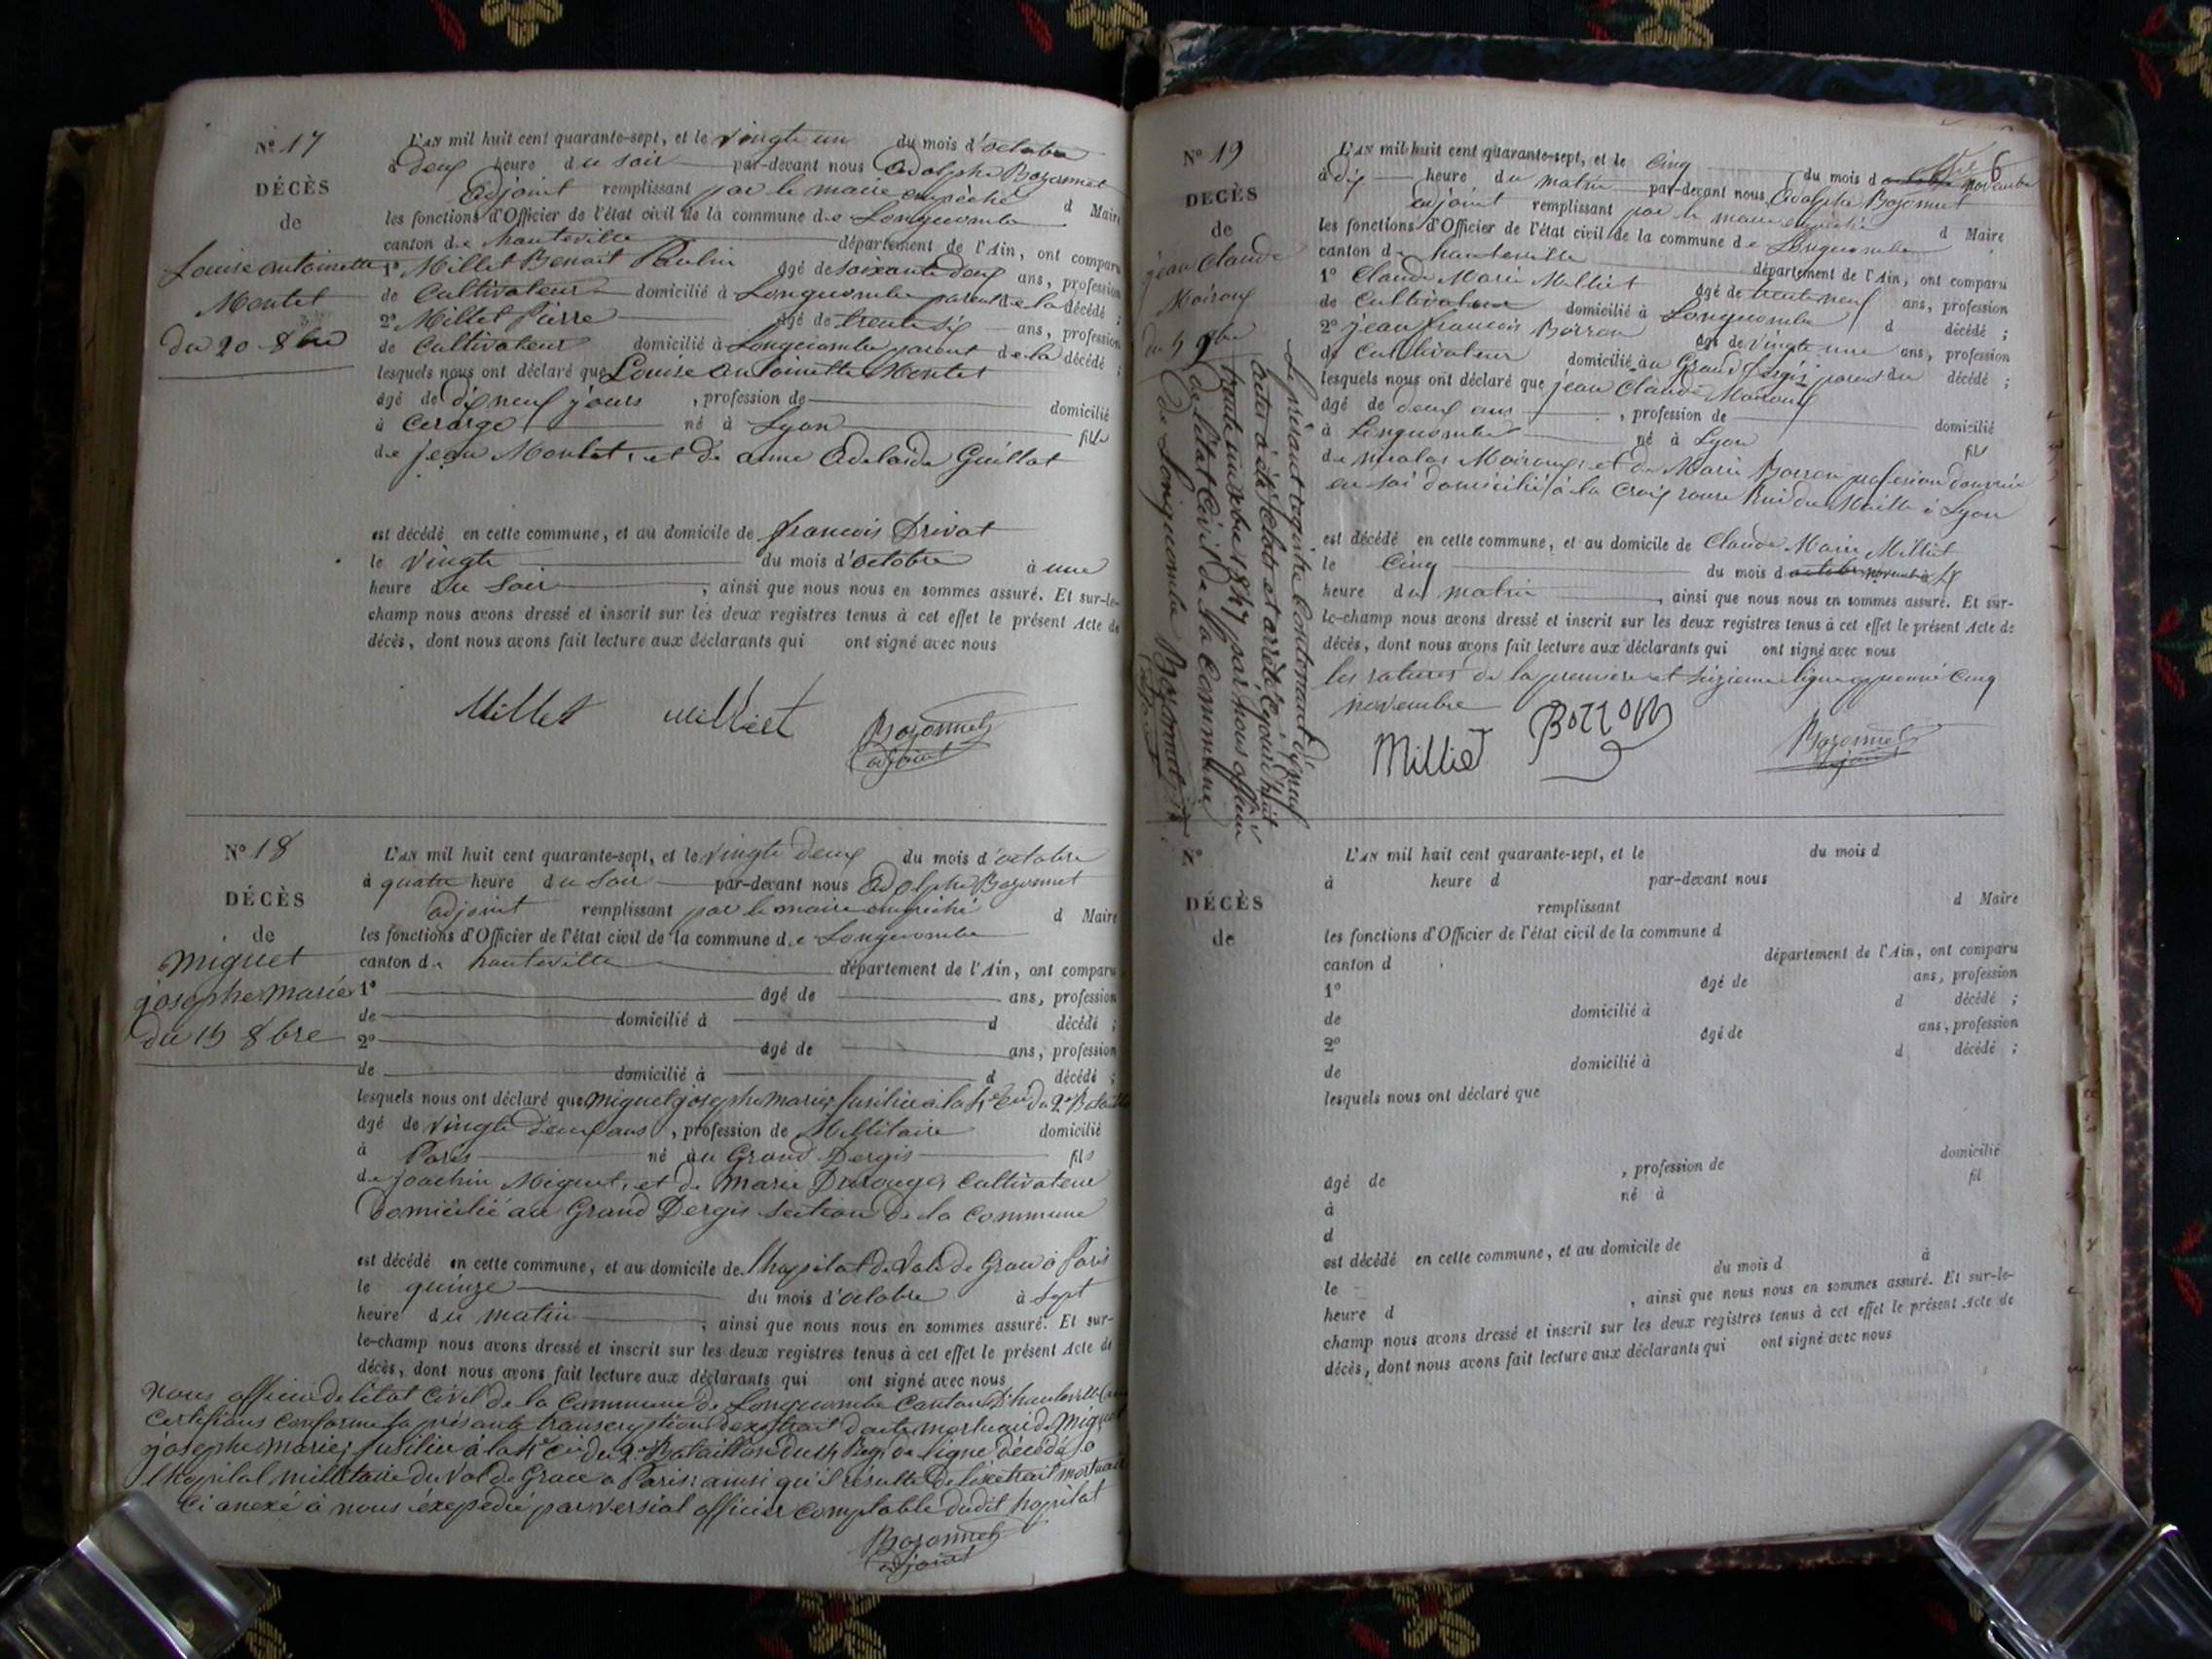 N° 17
DÉCÈS
de
Louise antoinette
Montet
du 20 8bre
L'AN mil huit cent quarante-sept, et le vingte un du mois d'octobre
à deux heure du soir par-devant nous Adolphe Bozonnet
adjoint remplissant par le maire empêché d Maire
les fonctions d'Officier de l'état civil de la commune de Longecombe
canton de hauteville département de l'Ain, ont comparu
1° Millet Benoit Paulin âgé de soixante deux ans, profession
de Cultivateur domicilié à Longecombe parent de la décédé ;
2° Millet Pierre âgé de trente six ans, profession
de Cultivateur domicilié à Longecombe parent de la décédé ;
lesquels nous ont déclaré que Louise antoinette Montet
âgé de dix neuf jours , profession de domicilié
à né à Lyon fille
de jean Montet, et de anne Adelaide Guillot
est décédé en cette commune, et au domicile de francois Privat
le vingte du mois d'octobre à une
heure du soir , ainsi que nous nous en sommes assuré. Et sur-le-
champ nous avons dressé et inscrit sur les deux registres tenus à cet effet le présent Acte de
décès, dont nous avons fait lecture aux déclarants qui ont signé avec nous
Millet Milliet Bozonnet
adjoint
N° 18
DÉCÈS
de
Miguet
josephe marie
du 15 8bre
L'AN mil huit cent quarante-sept, et le vingte deux du mois d'octobre
à quatre heure du soir par-devant nous Adolphe Bozonnet
adjoint remplissant par le maire empêché d Maire
les fonctions d'Officier de l'état civil de la commune de Longecombe
canton de hauteville département de l'Ain, ont comparu
1° âgé de ans, profession
de domicilié à d décédé ;
2° âgé de ans, profession
de domicilié à d décédé ;
lesquels nous ont déclaré que miguet josephe marie, fusilier à la 4e Cie du 2e Bataillon
âgé de vingte deux ans , profession de Millitaire domicilié
à Paris né au Grand Dergis fils
de joachin Miguet, et de Marie Cultivateur
Domicilié au Grand Dergis section de la Commune
est décédé en cette commune, et au domicile de l'hopital de Val de Grace à Paris
le quinze du mois d'octobre à sept
heure du matin , ainsi que nous nous en sommes assuré. Et sur-
le-champ nous avons dressé et inscrit sur les deux registres tenus à cet effet le présent Acte de
décès, dont nous avons fait lecture aux déclarants qui ont signé avec nous
Nous officier de l'état Civil de la Commune de Longecombe Canton D'hauteville
Certifions conforme la présante transcryption de extrait d'acte mortuaire de Miguet
josephe marie, fusilier à la 4e Cie du 2e Bataillon du Regt de ligne décédé à
l'hopital millitaire du Val de Grace a Paris ainsi qu'il résulte de l'exetrait mortuaire
Ci anexé à nous éxepedié par versial officier comptable dudit hopital
Bozonnet
adjoint
N° 19
DÉCÈS
de
jean Claude
Moiroux
du 5 9bre
6
L'AN mil huit cent quarante-sept, et le Cinq du mois d novembre
à dix heure du matin par-devant nous Adolphe Bozonnet
adjoint remplissant par le maire empêché d Maire
les fonctions d'Officier de l'état civil de la commune de Longecombe
canton de hauteville département de l'Ain, ont comparu
1° Claude Marie Milliet âgé de trente neuf ans, profession
de Cultivateur domicilié à Longecombe d décédé ;
2° jean francois Borron âgé de vingte une ans, profession
de Cultivateur domicilié au Grand Dergis parent du décédé ;
lesquels nous ont déclaré que jean Claude Moiroux
âgé de deux ans , profession de domicilié
à Longecombe né à Lyon fils
de nicolas Moiroux, et de Marie Borron profession d'ouvrié
en soi domicilié à la Croix rousse Rue du Maille à Lyon
est décédé en cette commune, et au domicile de Claude Marie Milliet
le Cinq du mois d octobre novembre à
heure du matin , ainsi que nous nous en sommes assuré. Et sur-
le-champ nous avons dressé et inscrit sur les deux registres tenus à cet effet le présent Acte de
décès, dont nous avons fait lecture aux déclarants qui ont signé avec nous
les ratures de la premiere et seizieme ligne Cinq
novembre
Milliet Borron Bozonnet
adjoint
Le présant registre Contenant dix neuf
actes à été Clos et arrêté ce jourd'huit
trente un xbre 1847 par nous officier
de l'état Civil de la Commune
de Longecombe Bozonnet
N°
DÉCÈS
de
L'AN mil huit cent quarante-sept, et le du mois d
à heure d par-devant nous
remplissant d Maire
les fonctions d'Officier de l'état civil de la commune d
canton d département de l'Ain, ont comparu
1° âgé de ans, profession
de domicilié à d décédé ;
2° âgé de ans, profession
de domicilié à d décédé ;
lesquels nous ont déclaré que
âgé de , profession de domicilié
à né à fil
d
est décédé en cette commune, et au domicile de
le du mois d à
heure d , ainsi que nous nous en sommes assuré. Et sur-le-
champ nous avons dressé et inscrit sur les deux registres tenus à cet effet le présent Acte de
décès, dont nous avons fait lecture aux déclarants qui ont signé avec nous